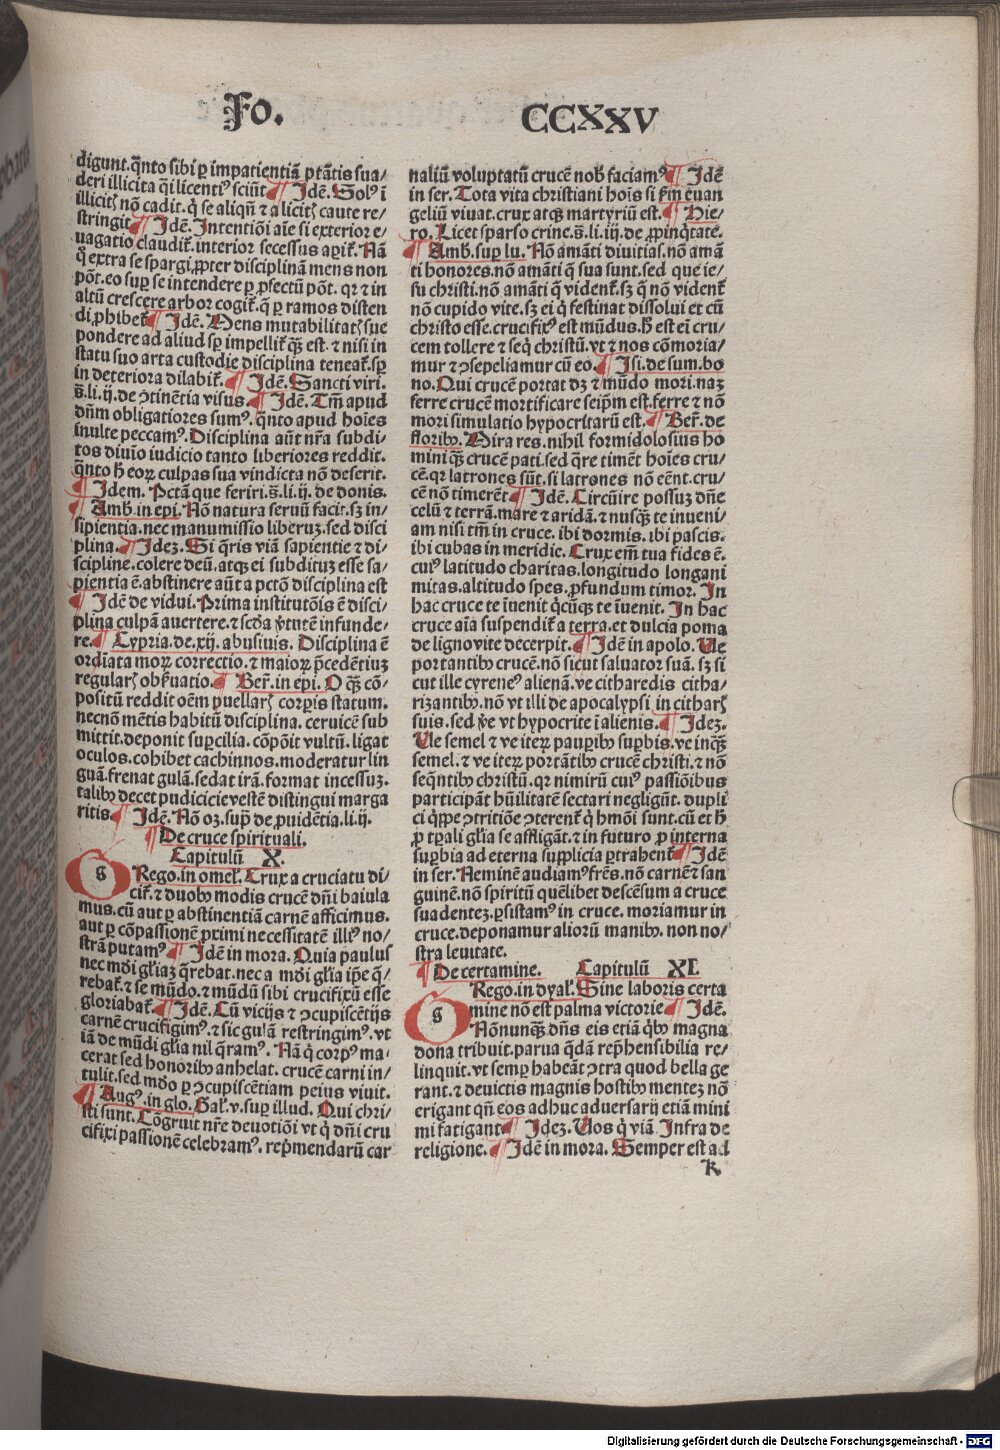 Fo. CCXXV
digunt.q̃nto sibi ꝑ impatientiã p̱tãtis sua/
deri illicita q̃i licentiꝰ sciũt ¶ Idẽ. Solꝰ ĩ
illicitꝭ nõ cadit.q̇ se aliqñ ⁊ a licitꝭ caute re/
stringit ¶ Idẽ. Intentiõi aĩe si exterior e/
uagatio claudit̃.interior secessus aꝑit̃. Nã
q̇ extra se spargi ꝓpter disciplinã mens non
põt.eo suꝑ se intendere ꝑ ꝓfectũ põt. qꝛ ⁊ in
altũ crescere arbor cogit̃.q̃ ꝑ ramos disten
di ꝓhibet̃ ¶ Idẽ. Mens mutabilitatꝭ sue
pondere ad aliud sꝑ impellit̃ qꝫ̃ est. ⁊ nisi in
statu suo arta custodie disciplina teneat̃.sꝑ
in deteriora dilabit̃. ¶ Idẽ. Sancti viri.
s̃.li.ij.de ↄtinẽtia visus. ¶ Idẽ. Tm̃ apud
dñm obligatiores sumꝰ. q̃nto apud hoĩes
inulte peccamꝰ. Disciplina aũt nr̃a subdi/
tos diuĩo iudicio tanto liberiores reddit.
q̃nto h̃ eoꝝ culpas sua vindicta nõ deserit.
¶ Idem. Pctã que feriri.s̃.li.ij. de donis.
¶ Amb.in epi. Nõ natura seruũ facit.sꝫ in/
sipientia.nec manumissio liberuꝫ.sed disci
plina. ¶ Ideꝫ. Si q̃ris viã sapientie ⁊ di/
scipline.colere deũ.atqꝫ ei subdituꝫ esse sa/
pientia ẽ.abstinere aũt a pctõ disciplina est
¶ Idẽ de vidui. Prima institutõis ẽ disci/
plina culpã auertere.⁊ scd̃a v̾tutẽ infunde/
re. ¶ Cypria.de.xij.abusiuis. Disciplina ẽ
ordĩata moꝝ correctio.⁊ maioꝝ p̃cedẽtiuꝫ
regularꝭ obs̃uatio. ¶ Ber̃.in epi. O qꝫ̃ cõ/
positũ reddit oẽm puellarꝭ corꝑis statum.
necnõ mẽtis habitũ disciplina. ceruicẽ sub
mittit.deponit suꝑcilia. cõpõit vultũ. ligat
oculos.cohibet cachinnos.moderatur lin
guã.frenat gulã.sedat irã.format incessuꝫ.
talibꝰ decet pudicicie vestẽ distingui marga
ritis. ¶ Idẽ. Nõ oꝫ.sup̃ de ꝓuidẽtia.li.ij.
¶ De cruce spirituali.
Capitulũ X.
Grego.in omel̃. Crux a cruciatu di/
cit̃. ⁊ duobꝰ modis crucẽ dñi baiula
mus.cũ aut ꝑ abstinentiã carnẽ afficimus.
aut ꝑ cõpassionẽ ꝓximi necessitatẽ illiꝰ no/
strã putamꝰ ¶ Idẽ in mora. Quia paulus
nec mõi gl̃iaꝫ q̃rebat.nec a mõi gl̃ia ip̃e q̃/
rebat̃.⁊ se mũdo.⁊ mũdũ sibi crucifixũ esse
gloriabat̃. ¶ Idẽ. Cũ vicijs ⁊ ↄcupiscẽtijs
carnẽ crucifigimꝰ.⁊ sic gulã restringimꝰ. vt
iã de mũdi gl̃ia nil q̃ramꝰ. Nã q̇ corpꝰ ma/
cerat sed honoribꝰ anhelat. crucẽ carni in/
tulit.sed mõo ꝑ ↄcupiscẽtiam peius viuit.
¶ Augꝰ.in glo. Gal̃.v.suꝑ illud. Qui chri/
sti sunt. Cõgruit nr̃e deuotiõi vt q̇ dñi cru
cifixi passionẽ celebramꝰ. rep̃mendarũ car
naliũ voluptatũ crucẽ nob̃ faciamꝰ ¶ Idẽ
in ser. Tota vita christiani hoĩs si ẜm euan
geliũ viuat.crux atqꝫ martyriũ est. ¶ Hie/
ro. Licet sparso crine.s̃.li.iij.de ꝓpinq̃tate.
¶ Amb.suꝑ lu. Nõ amãti diuitias.nõ amã
ti honores.nõ amãti q̃ sua sunt.sed que ie/
su christi.nõ amãti q̃ vident̃.sꝫ q̃ nõ vident̃
nõ cupido vite.sꝫ ei q̇ festinat dissolui et cũ
christo esse.crucifixꝰ est mũdus.h̃ est ei̇ cru/
cem tollere ⁊ seq̇ christũ.vt ⁊ nos cõmoria/
mur ⁊ ↄsepeliamur cũ eo. ¶ Isi.de sum.bo
no. Qui crucẽ portat dꝫ ⁊ mũdo mori.naꝫ
ferre crucẽ mortificare seip̃m est.ferre ⁊ nõ
mori simulatio hypocritarũ est. ¶ Ber̃.de
floribꝰ. Mira res.nihil formidolosius ho
mini qꝫ̃ crucẽ pati.sed q̃re timẽt hoĩes cru/
cẽ.qꝛ latrones sũt.si latrones nõ eẽnt.cru/
cẽ nõ timerẽt ¶ Idẽ. Circũire possuꝫ dñe
celũ ⁊ terrã.mare ⁊ aridã.⁊ nusqꝫ̃ te inueni/
am nisi tm̃ in cruce. ibi dormis. ibi pascis.
ibi cubas in meridie. Crux em̃ tua fides ẽ.
cuiꝰ latitudo charitas.longitudo longani
mitas.altitudo spes.ꝓfundum timor. In
hac cruce te ĩuenit q̇cũqꝫ te ĩuenit. In hac
cruce aĩa suspendit̃ a terra.et dulcia poma
de ligno vite decerpit. ¶ Idẽ in apolo. Ue
portantibꝰ crucẽ.nõ sicut saluator suã.sꝫ si
cut ille cyreneꝰ alienã.ve citharedis citha/
rizantibꝰ.nõ vt illi de apocalypsi in citharꝭ
suis.sed v̾e vt hypocrite ĩ alienis. ¶ Ideꝫ.
Ue semel ⁊ ve iteꝝ pauꝑibꝰ suꝑbis.ve inqꝫ̃
semel.⁊ ve iteꝝ portãtibꝰ crucẽ christi.⁊ nõ
seq̃ntibꝰ christũ.qꝛ nimirũ cuiꝰ passiõibus
participãt hũilitatẽ sectari negligũt. dupli
ci q̃ppe ↄtritiõe ↄterent̃ q̇ hmõi sunt.cũ et h̃
ꝓ tꝑali gl̃ia se affligãt.⁊ in futuro ꝓ interna
suꝑbia ad eterna supplicia ꝑtrahent̃ ¶ Idẽ
in ser. Neminẽ audiamꝰ fr̃es.nõ carnẽ ⁊ san
guinẽ.nõ spiritũ quẽlibet descẽsum a cruce
suadenteꝫ.ꝑsistamꝰ in cruce. moriamur in
cruce.deponamur aliorũ manibꝰ. non no/
stra leuitate.
¶ De certamine. Capitulũ XI.
Grego.in dyal̃. Sine laboris certa
mine nõ est palma victorie ¶ Idẽ.
Nõnunqꝫ̃ dñs eis etiã q̇bꝰ magna
dona tribuit.parua q̃dã rep̃hensibilia re/
linquit.vt semꝑ habeãt ↄtra quod bella ge
rant.⁊ deuictis magnis hostibꝰ menteꝫ nõ
erigant qñ eos adhuc aduersarij etiã mini
mi fatigant ¶ Ideꝫ. Uos q̇ viã. Infra de
religione. ¶ Idẽ in mora. Semper est ad
k
Digitalisierung gefördert durch die Deutsche Forschungsgemeinschaft - DFG